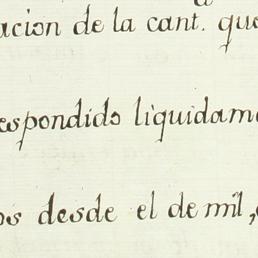 acion de la cant. que
espondido liquidam
os desde el de mil,